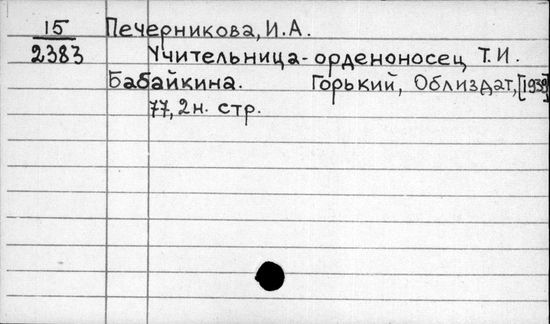 15 Печерникова, И.А.
2383 Учительница-орденоносец Т.И.
Бабайкина. Горький, Облиздат, [1939]
77, 2 н. стр.